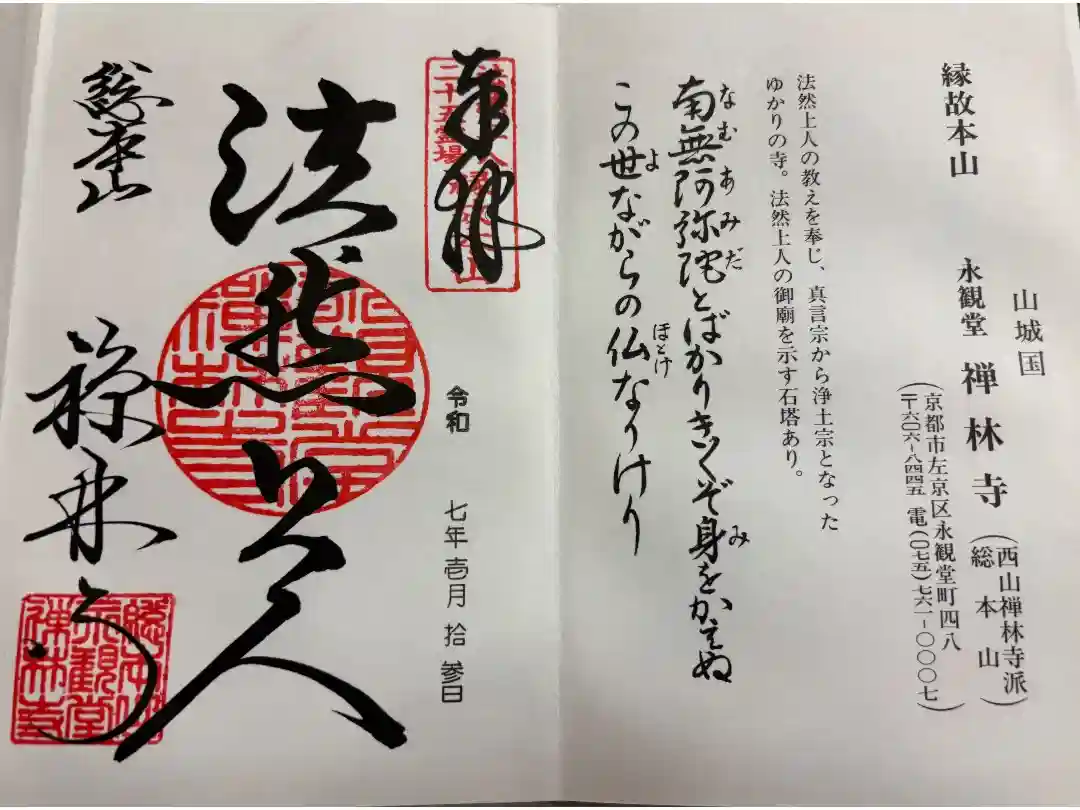 縁故本山
山城国
永観堂 禅林寺(西山禅林寺派総本山)
(京都市左京区永観堂町四八
〒六〇六-八四四五 電(〇七五)七六一-〇〇〇七)
法然上人の教えを奉じ、真言宗から浄土宗となった
ゆかりの寺。法然上人の御廟を示す石塔あり。
南無阿弥陀とばかりきくぞ身をかへぬ
なむあみだ
み
この世ながらの仏なりけり
よ
ほとけ
奉拝
二十五霊場
令和 七年壱月拾参日
法然上人
総本山
禅林寺
総本山
永観堂
禅林寺